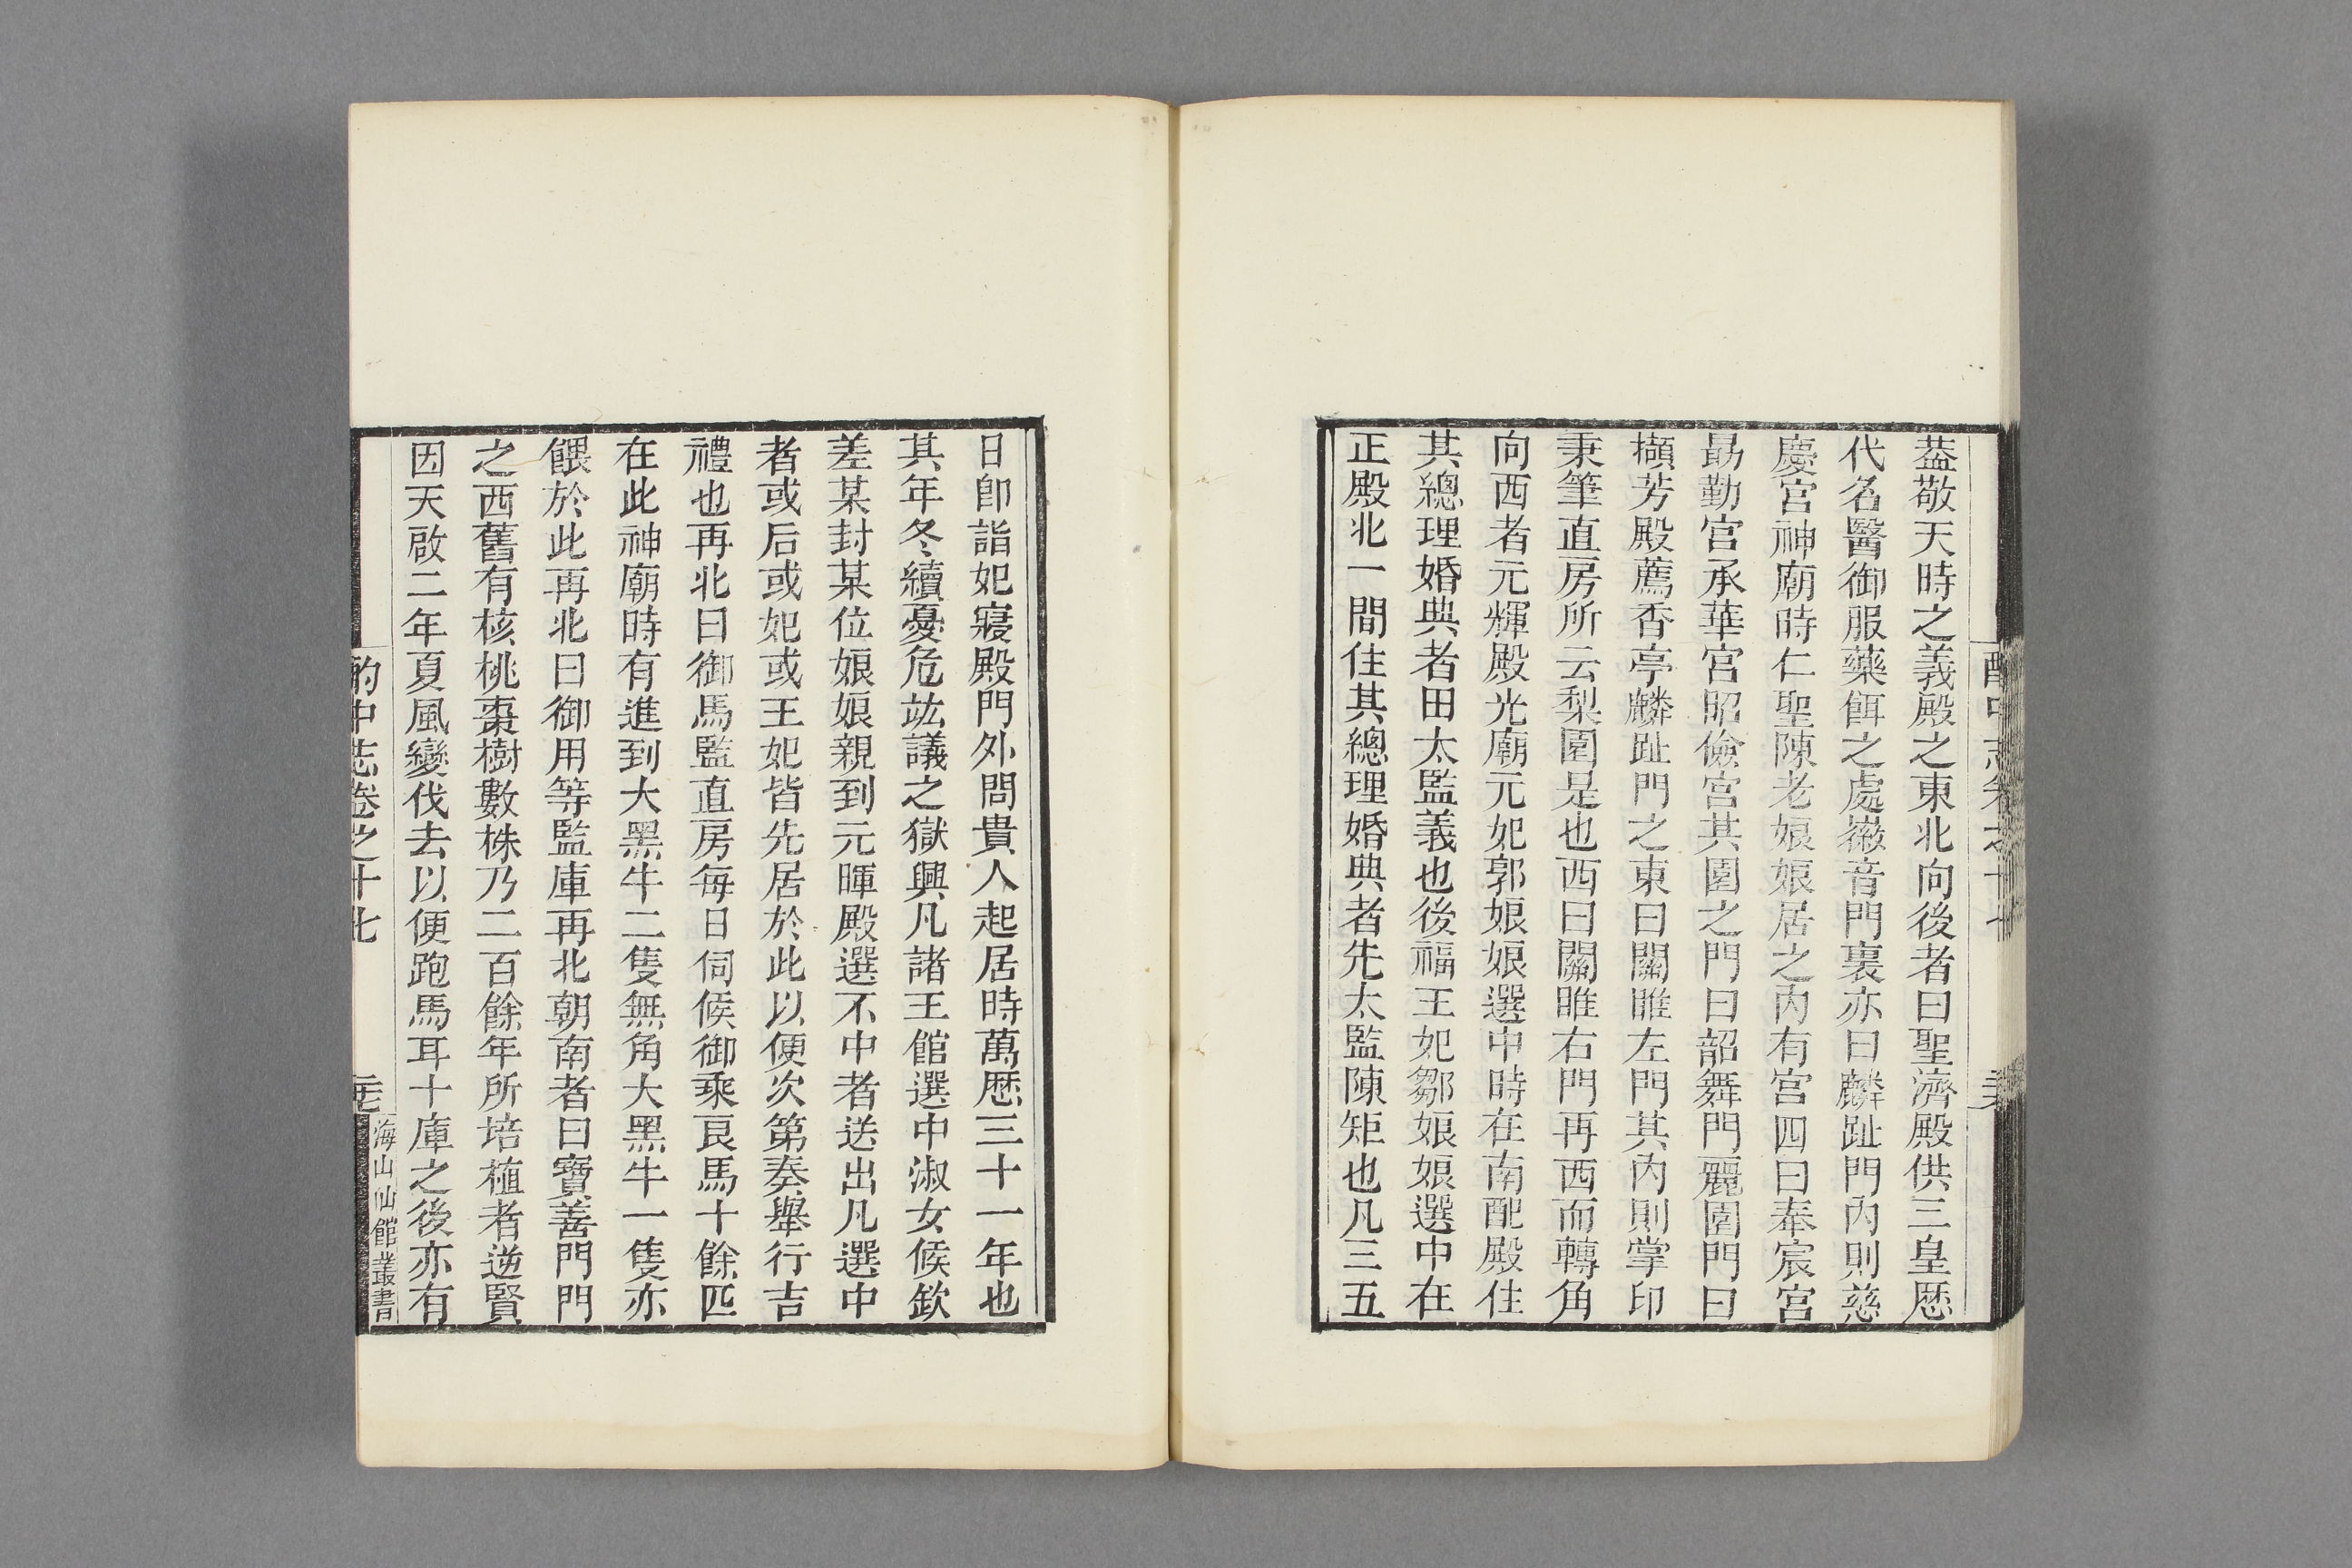 葢敬天時之義殿之東北向後者曰聖濟殿供三皇厯
代名醫御服藥餌之處徽音門裏亦曰麟趾門內則慈
慶宮神廟時仁聖陳老娘娘居之內有宮四曰奉宸宮
勗勤宮承華宮昭儉宮其園之門曰韶舞門麗園門曰
擷芳殿薦香亭麟趾門之東曰關睢左門其內則掌印
秉筆直房所云梨園是也西曰關睢右門再西而轉角
向西者元輝殿光廟元妃郭娘娘選中時在南配殿住
其總理婚典者田太監義也後福王妃鄒娘娘選中在
正殿北一間住其總理婚典者先太監陳矩也凡三五
日卽詣妃寢殿門外問貴人起居時萬厯三十一年也
其年冬續憂危竑議之獄興凡諸王館選中淑女候欽
差某封某位娘娘親到元暉殿選不中者送出凡選中
者或后或妃或王妃皆先居於此以便次第奏舉行吉
禮也再北曰御馬監直房每日伺候御乘良馬十餘匹
在此神廟時有進到大黑牛二隻無角大黑牛一隻亦
餵於此再北曰御用等監庫再北朝南者曰寶善門門
之西舊有核桃棗樹數株乃二百餘年所培植者逆賢
因天啟二年夏風變伐去以便跑馬耳十庫之後亦有
酌中志卷之十七
海山仙館叢書